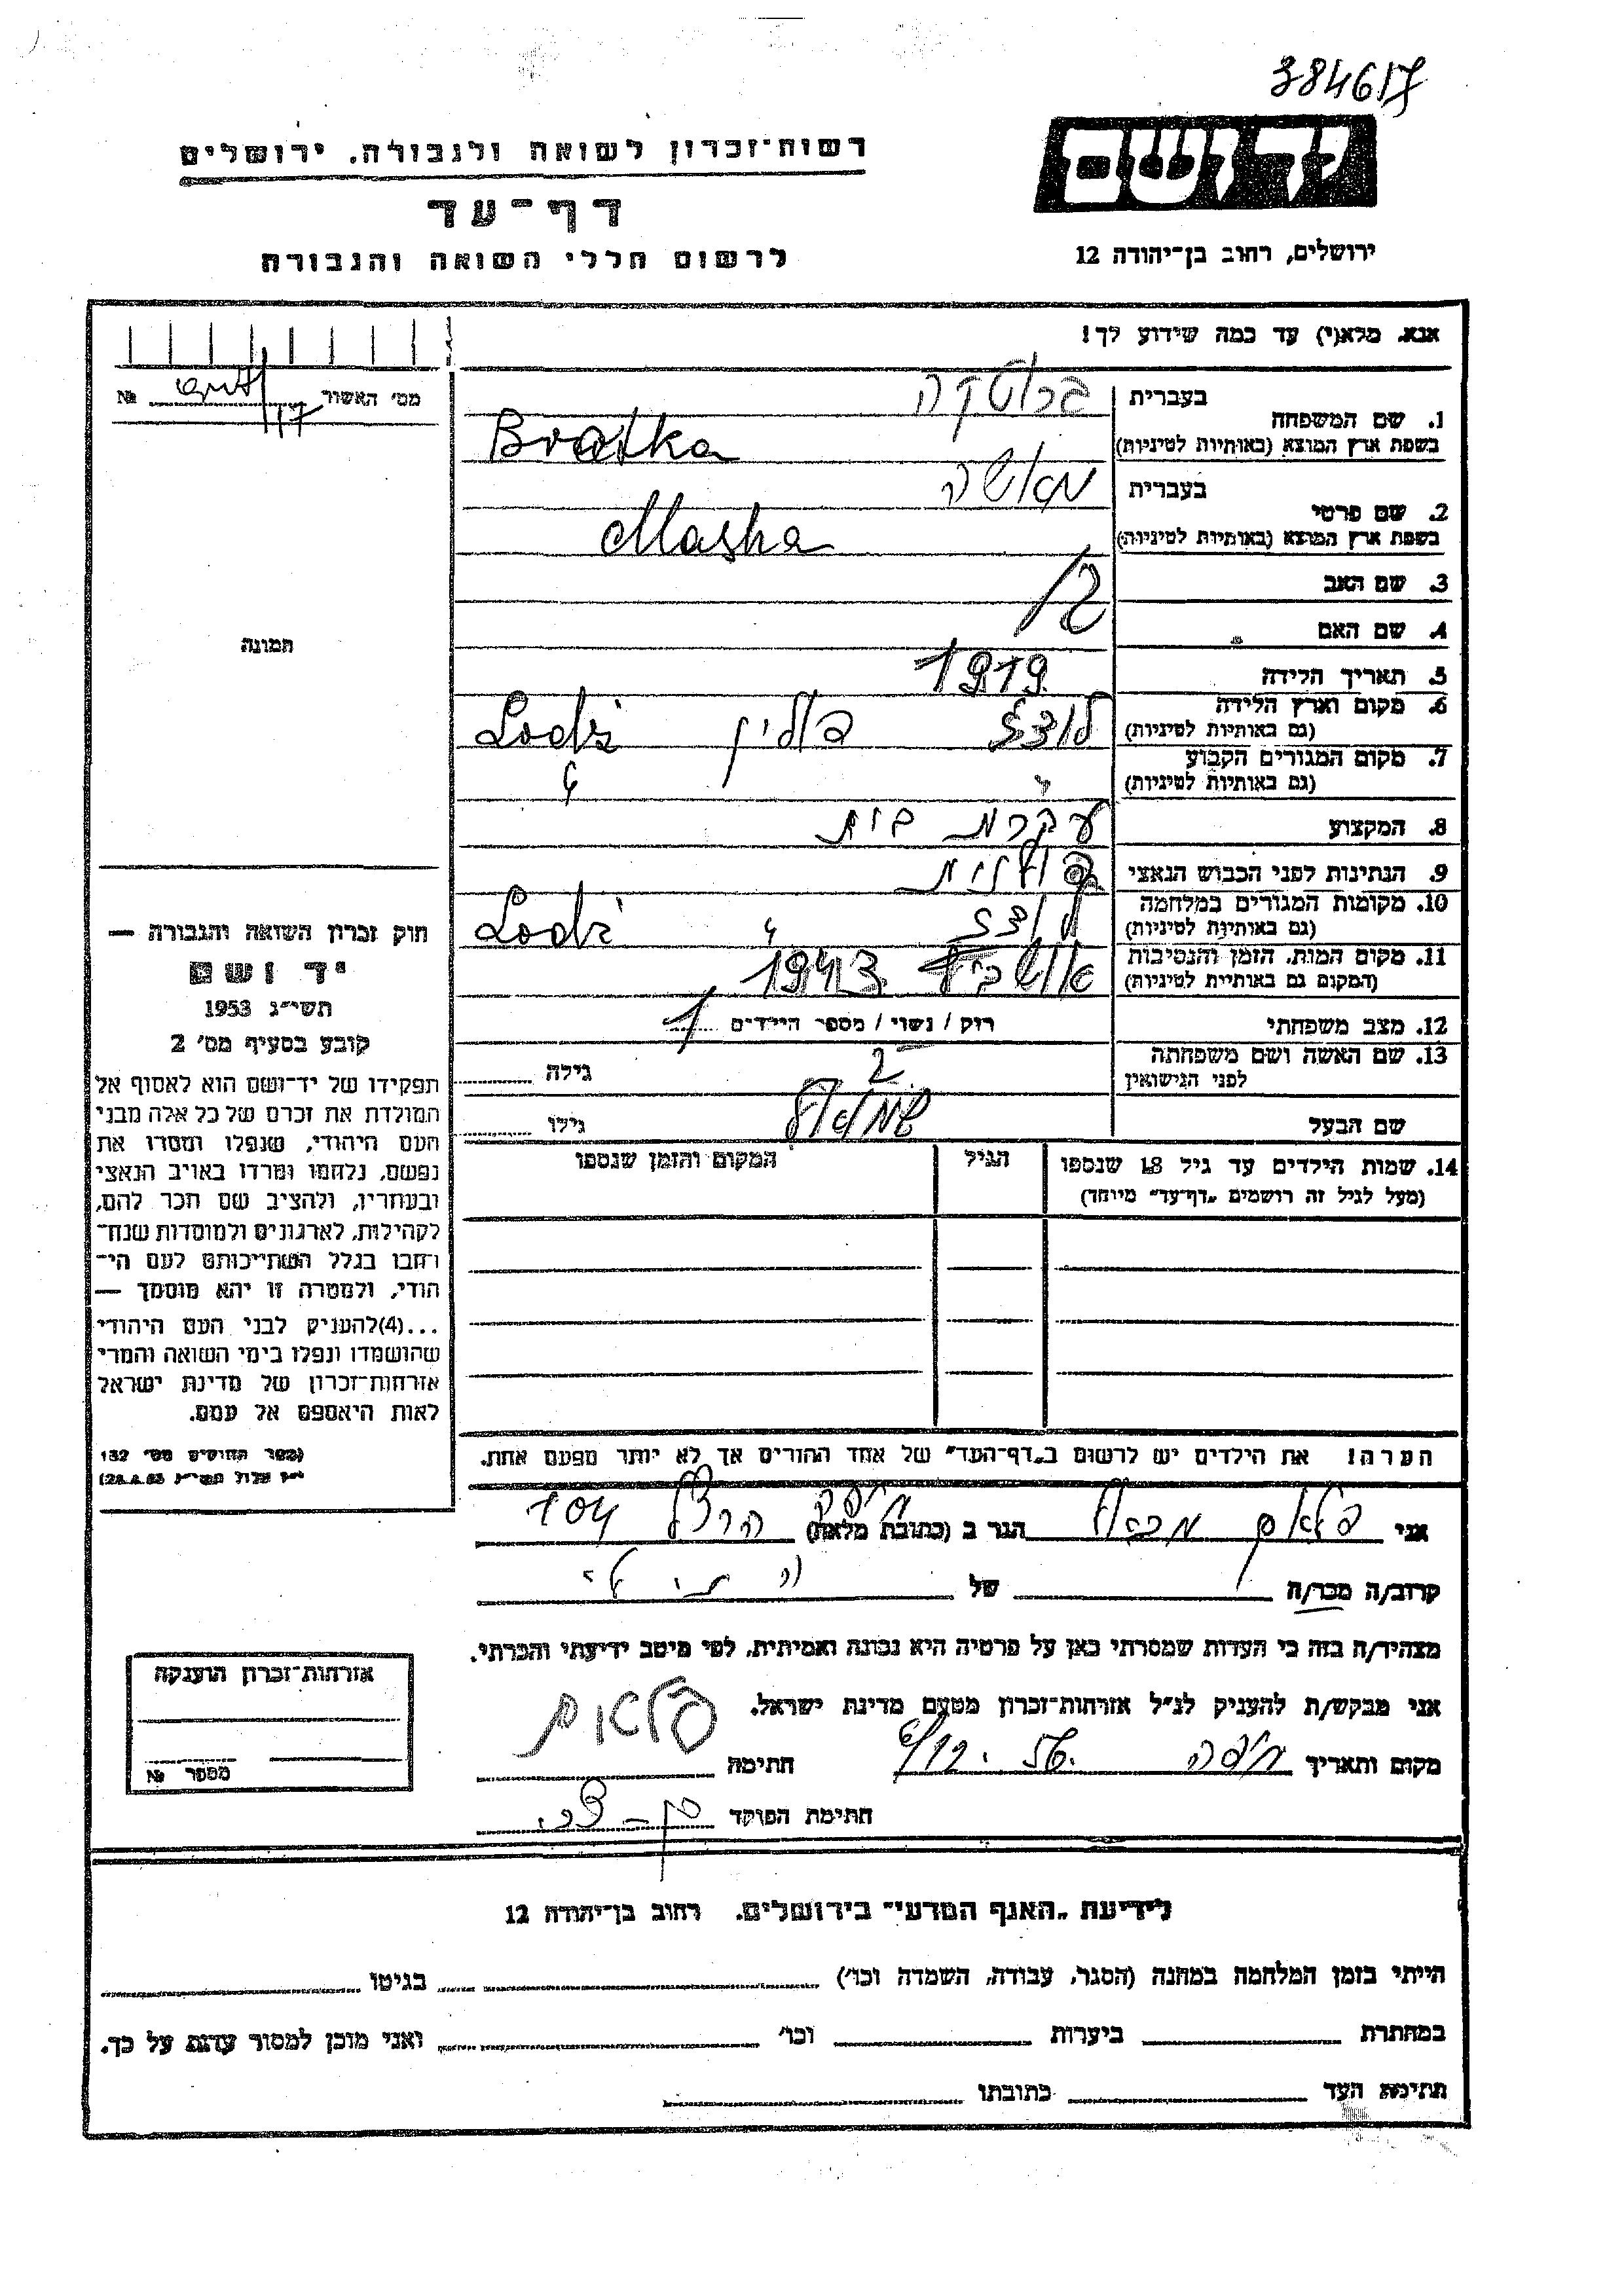 384617
רשות-זכרון לשואה ולגבורה. ירושלים
דף-עד
לרשום חללי השואה והגבורה
יד ושם
ירושלים, רחוב בן-יהודה 12
אנא. מלא(י) עד כמה שידוע לך!
מס' האשור № 17
תמונה
1. שם המשפחה
בעברית
בשפת ארץ המוצא (באותיות לטיניות)
Bratka
2. שם פרטי
בעברית מאשה
בשפת ארץ המוצא (באותיות לטיניות)
Masha
3. שם האב
4. שם האם
5. תאריך הלידה 1919
6. מקום וארץ הלידה
(גם באותיות לטיניות)
לודז פולין Lodż
7. מקום המגורים הקבוע
(גם באותיות לטיניות)
8. המקצוע עקרת בית
9. הנתינות לפני הכבוש הנאצי פולנית
10. מקומות המגורים במלחמה
(גם באותיות לטיניות)
Lodż
11. מקום המות. הזמן והנסיבות
(המקום גם באותיית לטיניות)
1943
12. מצב משפחתי רוק / נשוי / מספר הילדים 1
13. שם האשה ושם משפחתה
לפני הנישואין
גילה
שם הבעל שמואל גילו
14. שמות הילדים עד גיל 18 שנספו
(מעל לגיל זה רושמים „דף-עד" מיוחד)
הגיל
המקום והזמן שנספו
חוק זכרון השואה והגבורה —
יד ושם
תשי״ג 1953
קובע בסעיף מס' 2
תפקידו של יד-ושם הוא לאסוף אל
המולדת את זכרם של כל אלה מבני
העם היהודי, שנפלו ומסרו את
נפשם, נלחמו ומרדו באויב הנאצי
ובעוזריו, ולהציב שם וזכר להם,
לקהילות, לארגונים ולמוסדות שנח-
רחבו בגלל השתייכותם לעם הי-
הודי, ולמטרה זו יהא מוסמך —
...(4)להעניק לבני העם היהודי
שהושמדו ונפלו בימי השואה והמרי
אזרחות-זכרון של מדינת ישראל
לאות היאספם אל עמם.
(ספר החוקים מס' 132
הערה! את הילדים יש לרשום ב„דף-העד" של אחד ההורים אך לא יותר מפעם אחת.
אני הגר ב (כתובת מלאה) חיפה הרצל 104
קרוב/ה מכר/ה של
מצהיר/ה בזה כי העדות שמסרתי כאן על פרטיה היא נכונה ואמיתית. לפי מיטב ידיעתי והכרתי.
אני מבקש/ת להעניק לנ״ל אזרחות-זכרון מטעם מדינת ישראל.
מקום ותאריך חיפה חתימה
חתימת הפוקד
אזרחות-זכרון הוענקה
מספר №
לידיעת „האגף המדעי" בירושלים. רחוב בן-יהודה 12
הייתי בזמן המלחמה במחנה (הסגר, עבודה, השמדה וכו') בגיטו
במחתרת ביערות וכו' ואני מוכן למסור עדות על כך.
חתימת העד כתובתו